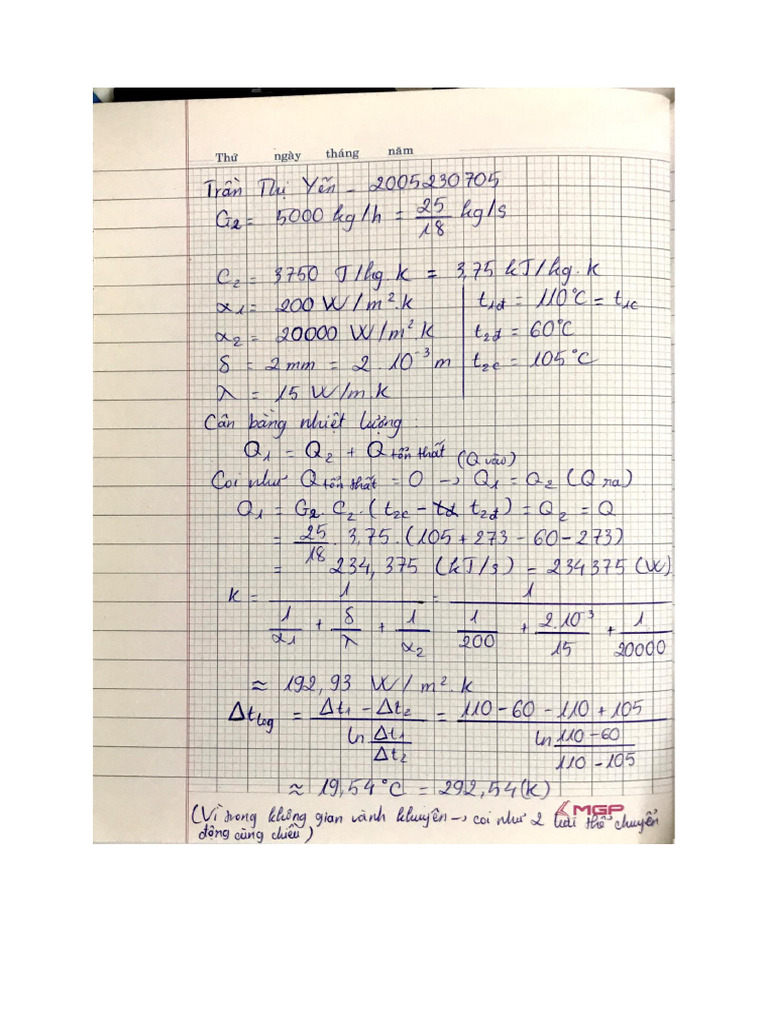 Thứ ngày tháng năm
Trần Thị Yến - 2005230705
G2 = 5000 kg/h = 25/18 kg/s
C2 = 3750 J/kg.k = 3,75 kJ/kg.k
α1 = 200 W/m².k | t1đ = 110°C = t1c
α2 = 20000 W/m².k | t2đ = 60°C
δ = 2mm = 2.10⁻³ m | t2c = 105°C
λ = 15 W/m.k
Cân bằng nhiệt lượng :
Q1 = Q2 + Q tổn thất (Q vào)
Coi như Q tổn thất = 0 → Q1 = Q2 (Q ra)
Q1 = G2. C2. (t2c - t2đ) = Q2 = Q
= 25/18 . 3,75. (105 + 273 - 60 - 273)
= 234,375 (kJ/s) = 234375 (W)
k = 1/(1/α1 + δ/λ + 1/α2) = 1/(1/200 + 2.10⁻³/15 + 1/20000)
≈ 192,93 W/m².k
Δt log = (Δt1 - Δt2)/(ln Δt1/Δt2) = (110 - 60 - 110 + 105)/(ln (110 - 60)/(110 - 105))
≈ 19,54°C = 292,54(k)
MGP
(Vì trong không gian vành khuyên → coi như 2 lưu thể chuyển
động cùng chiều)